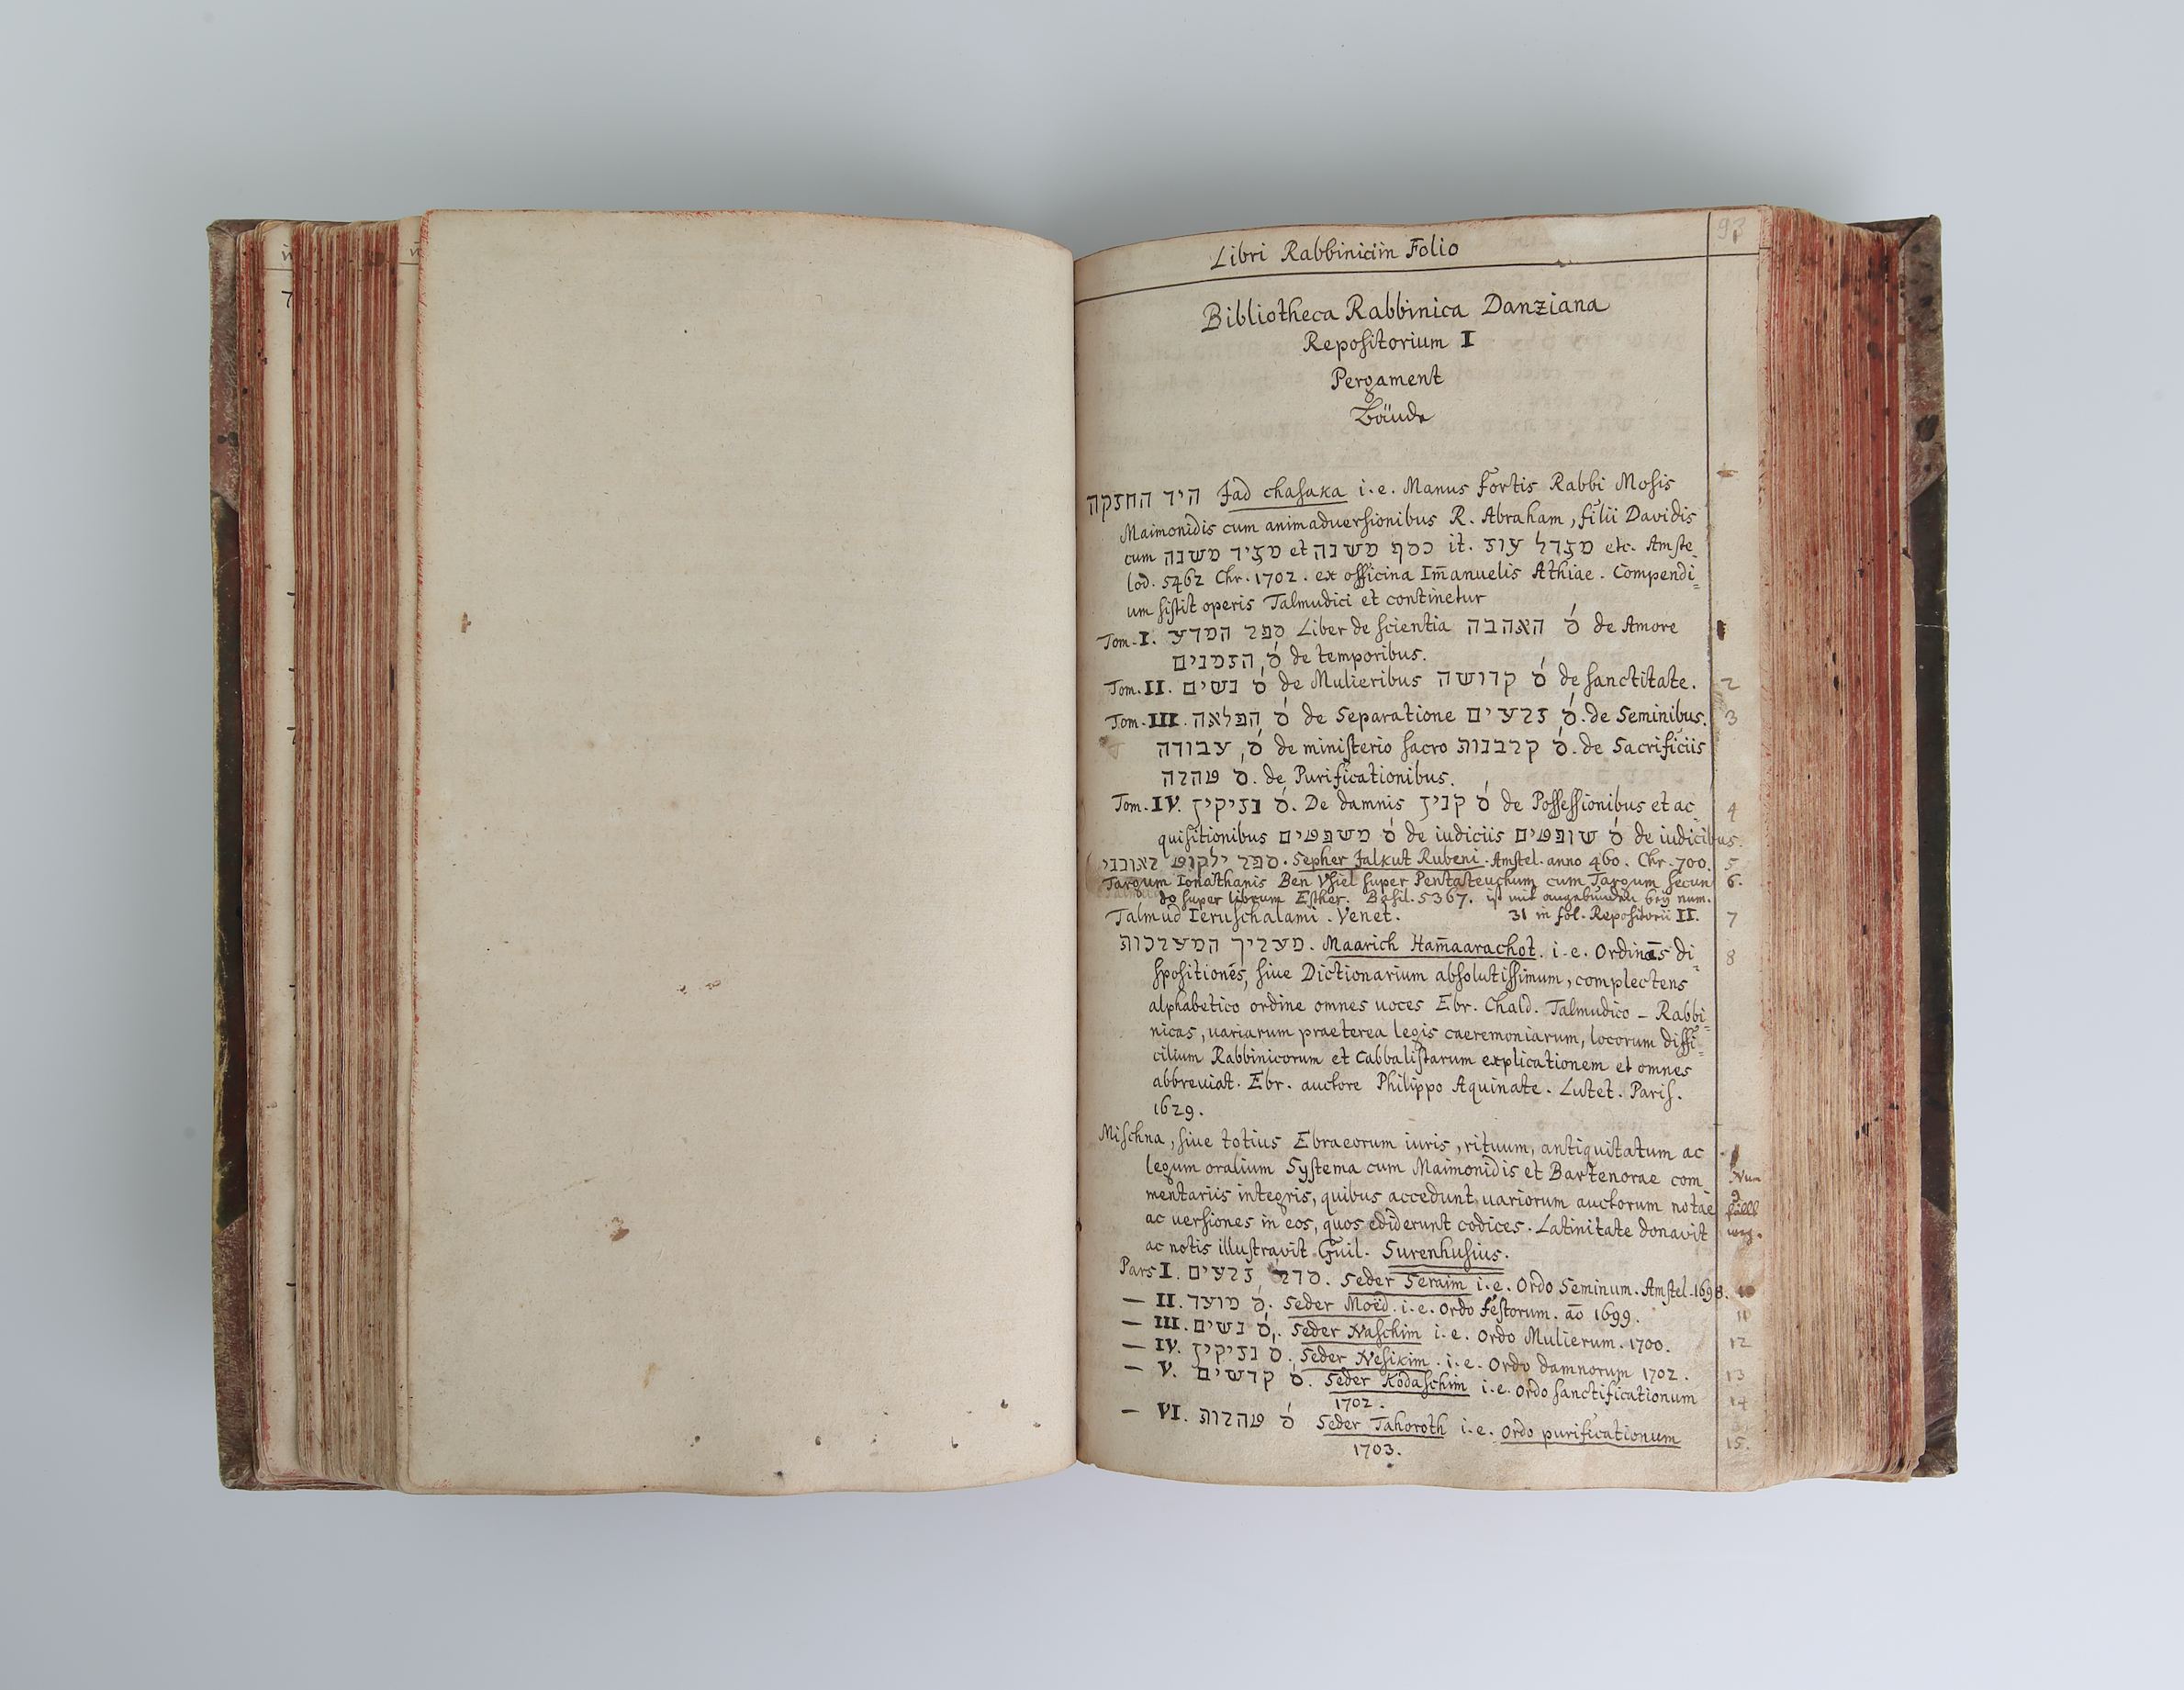 Libri Rabbinici in Folio
93
Bibliotheca Rabbinica Danziana
Repositorium I
Pergament
Bände
היד החזקה Jad chasaka i.e. Manus Fortis Rabbi Mosis
Maimonidis cum animaduersionibus R. Abraham, filii Davidis
cum מגיד משנה et כסף משנה it. מגדל עוז etc. Amste-
lod. 5462 Chr. 1702. ex officina Im̄anuelis Athiae. Compendi=
um sistit operis Talmudici et continetur
Tom. I. ספר המדע Liber de scientia ס׳ האהבה de Amore 1
ס׳ הזמנים de temporibus.
Tom. II. ס׳ נשים de Mulieribus ס׳ קדושה de sanctitate. 2
Tom. III. ס׳ הפלאה de Separatione ס׳ זרעים. de Seminibus. 3
ס׳ עבודה de ministerio sacro ס׳ קרבנות. de Sacrificiis
ס׳ טהרה. de Purificationibus.
Tom. IV. ס׳ נזיקין. De damnis ס׳ קנין de Possessionibus et ac- 4
quisitionibus ס׳ משפטים de iudiciis ס׳ שופטים de iudicibus.
ספר ילקוט ראובני. Sepher Jalkut Rubeni. Amstel. anno 460. Chr. 700. 5
Targum Ionathanis Ben Vsiel super Pentateuchum cum Targum secun 6.
do super librum Esther. Basil. 5367. ist mit angebunden bey num.
Talmud Ieruschalami. Venet. 31 in fol. Repositorii II. 7
מעריך המערכות. Maarich Ham̄aarachot. i.e. Ordinis di- 8
spositiones, siue Dictionarium absolutissimum, complectens
alphabetico ordine omnes uoces Ebr. Chald. Talmudico - Rabbi=
nicas, uariarum praeterea legis caeremoniarum, locorum diffi=
cilium Rabbinicorum et Cabbalistarum explicationem et omnes
abbreuiat. Ebr. auctore Philippo Aquinate. Lutet. Paris.
1629.
Mischna, siue totius Ebraeorum iuris, rituum, antiquitatum ac
legum oralium Systema cum Maimonidis et Bartenorae com Num
mentariis integris, quibus accedunt uariorum auctorum notae 9 fällt
ac uersiones in eos, quos ediderunt codices. Latinitate donavit weg.
ac notis illustravit Guil. Surenhusius.
Pars I. סדר זרעים. Seder Seraim i.e. Ordo Seminum. Amstel. 1698. 10
— II. ס׳ מועד. Seder Moëd. i.e. Ordo festorum. aō 1699. 11
— III. ס׳ נשים. Seder Naschim i.e. Ordo Mulierum. 1700. 12
— IV. ס׳ נזיקין. Seder Nesikim. i.e. Ordo damnorum 1702. 13
— V. ס׳ קדשים. Seder Kodaschim i.e. Ordo sanctificationum 14
1702.
— VI. ס׳ טהרות Seder Tahoroth i.e. Ordo purificationum 15.
1703.